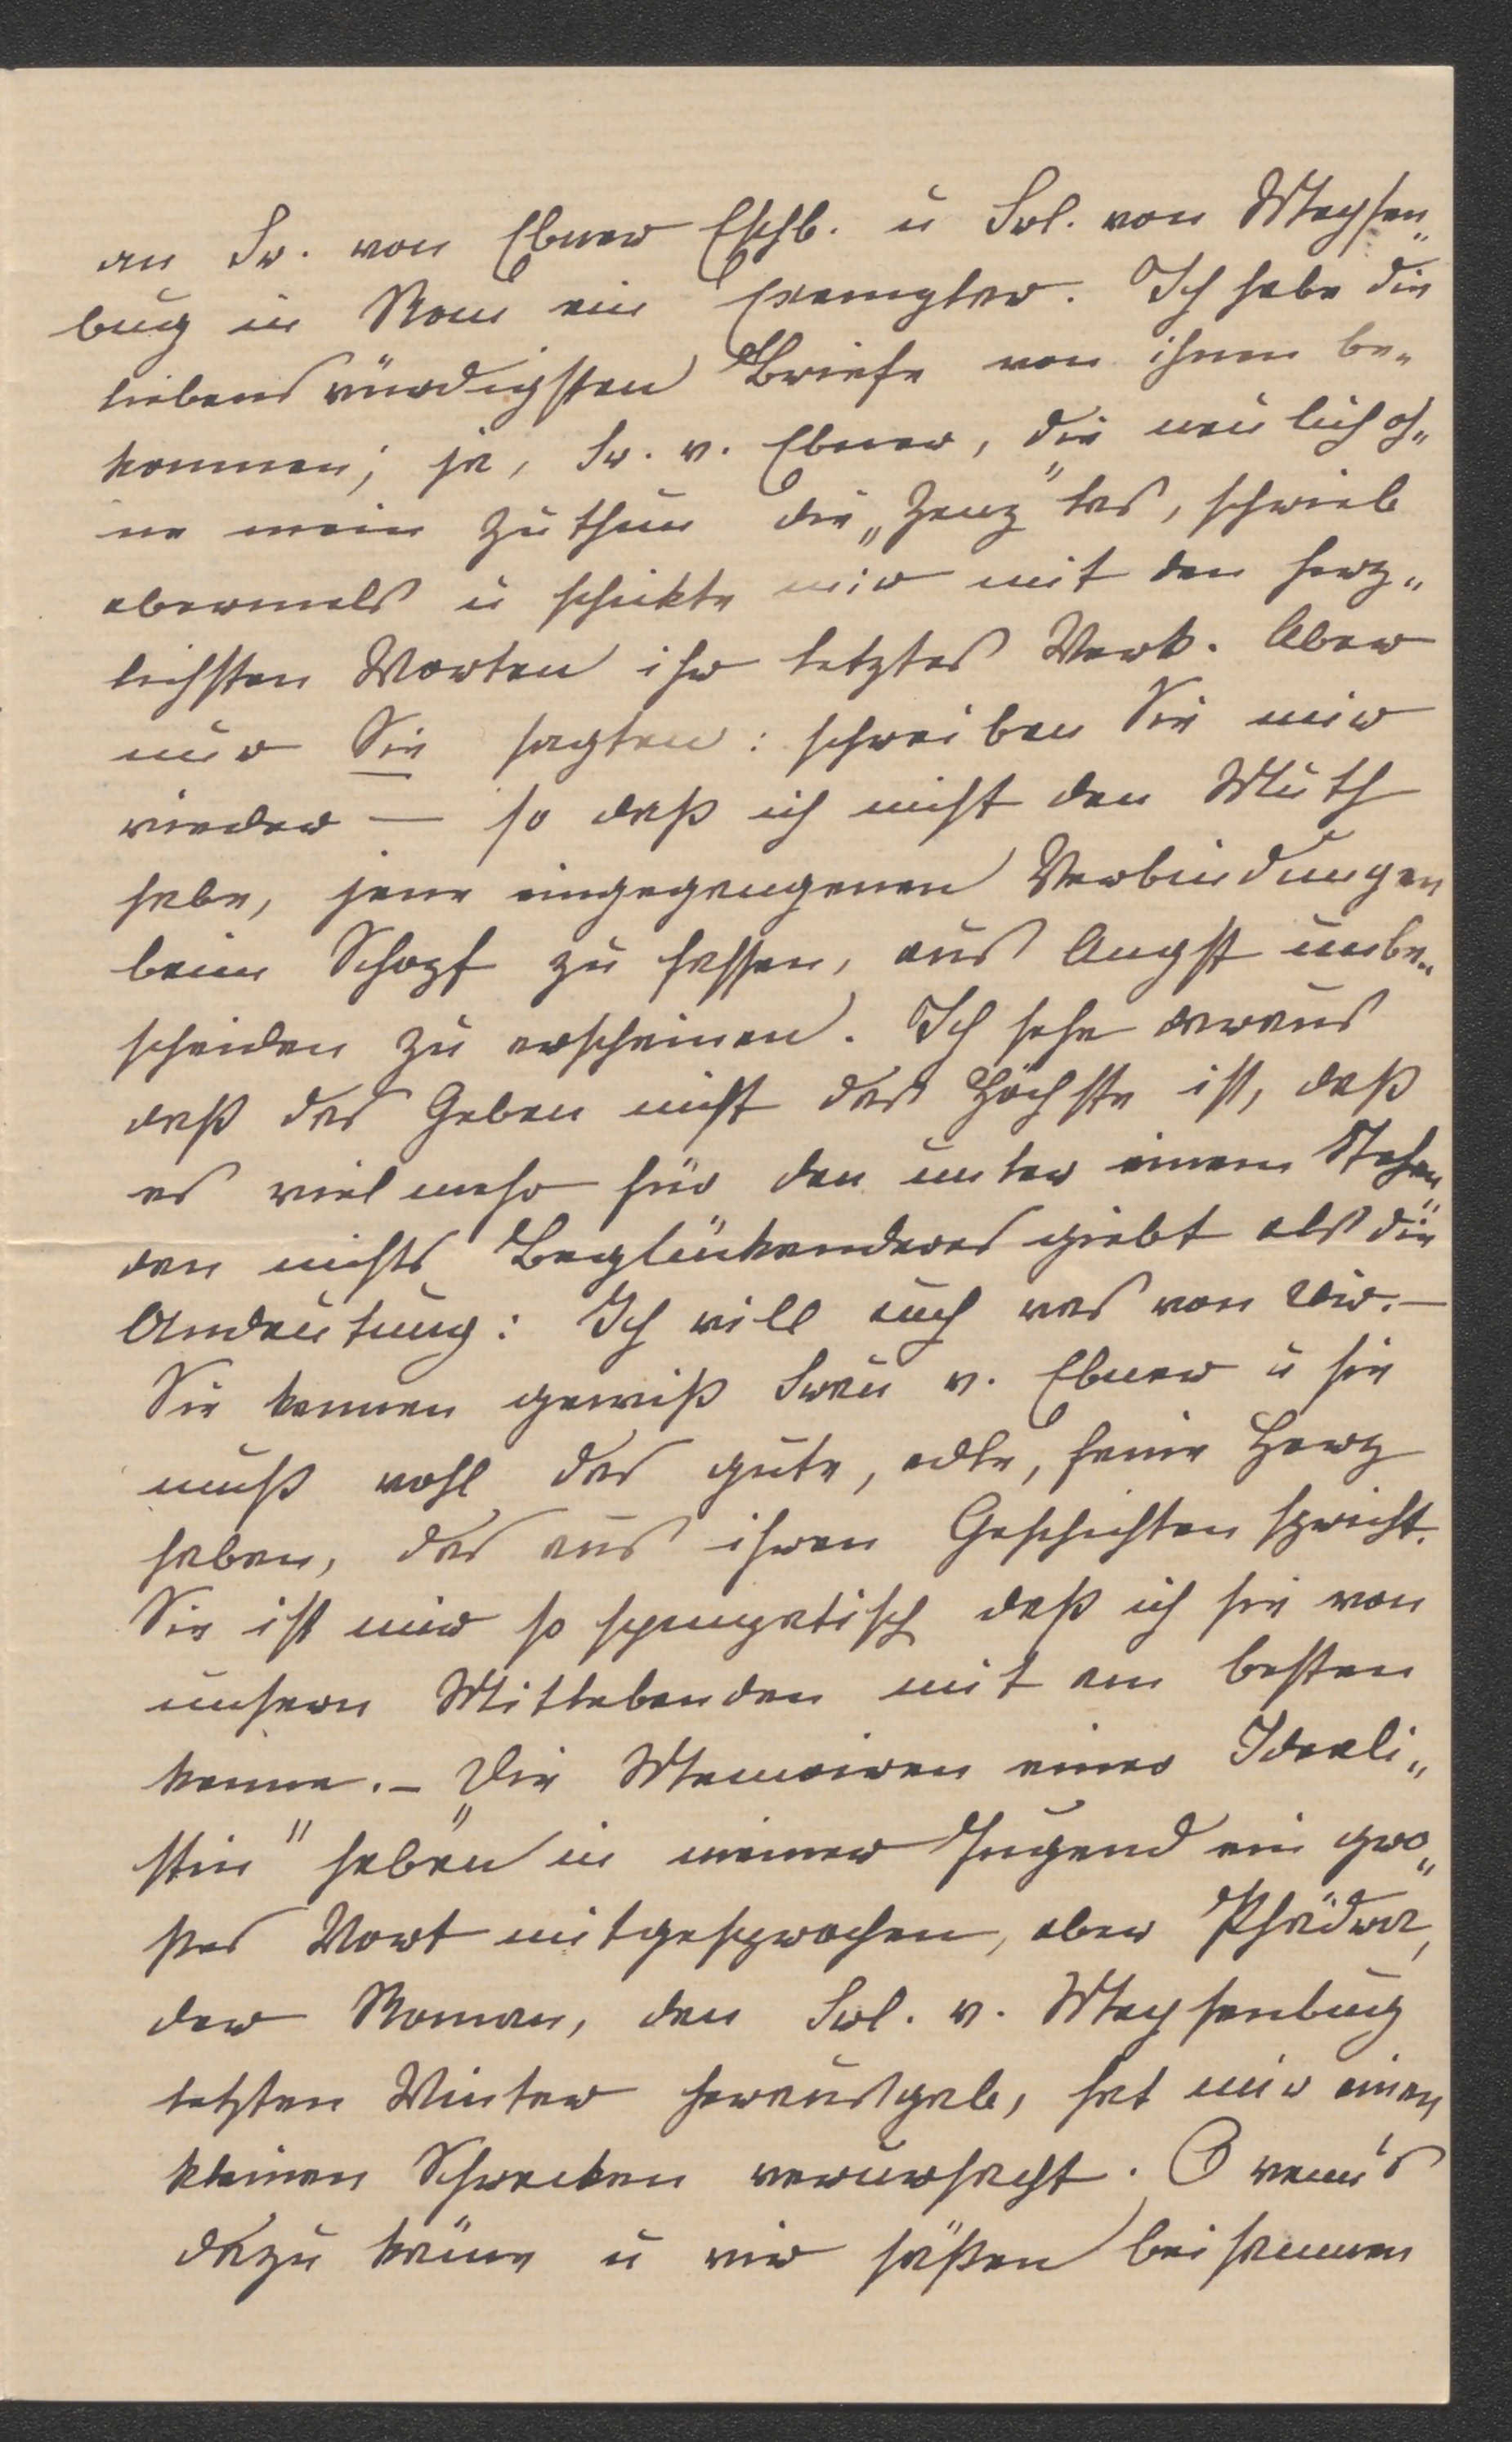 an Fr. von Ebner Eschb. u Frl. von Meysen„
bug in Rom ein Exemplar. Ich habe die
liebenswürdigsten Briefe von ihnen be„
kommen; ja, Fr. v. Ebner, die neulich oh„
ne mein Zuthun die „Zenz" las, schrieb
abermals u schickte mir mit den herz„
lichsten Worten ihr letztes Werk. Aber
nur Sie sagten: schreiben Sie mir
wieder — so daß ich nicht den Muth
habe, jene eingegangenen Verbindungen
beim Schopf zu fassen, aus Angst unbe„
scheiden zu erscheinen. Ich sehe daraus
daß das Geben nicht das Höchste ist, daß
es vielmehr für den unter einem Stehen„
den nichts Beglückenderes giebt als die
Andeutung: Ich will auch was von Dir. —
Sie kennen gewiß Frau v. Ebner u sie
muß wohl das gute, edle, feine Herz
haben, das aus ihren Geschichten spricht.
Sie ist mir so sympatisch daß ich sie von
unsern Mitlebenden mit am besten
kenne. — Die „Memoiren einer Ideali„
stin" haben in meiner Jugend ein gro„
ßes Wort mitgesprochen, aber Phädra,
der Roman, den Frl. v. Meysenbug
letzten Winter herausgab, hat mir einen
kleinen Schrecken verursacht. O wenn's
dazu käme u wir säßen beisammen